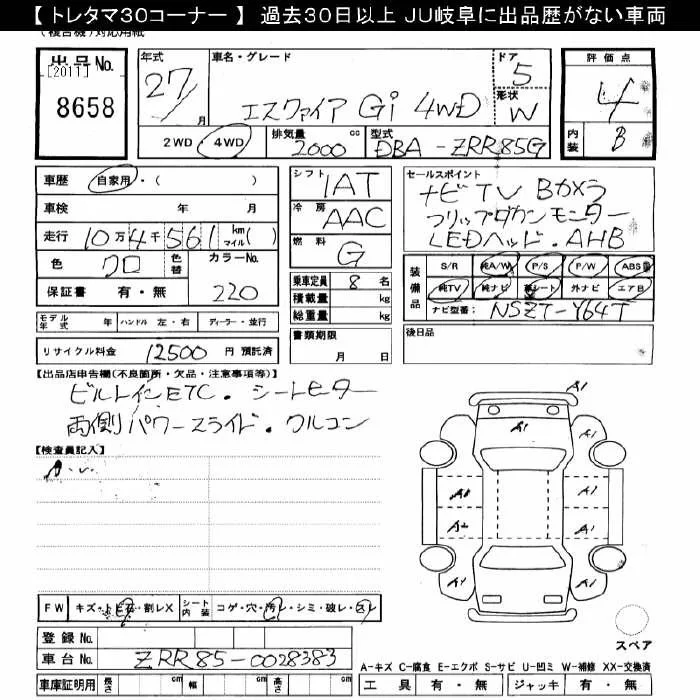 【 トレタマ30コーナー 】 過去30日以上 JU岐阜に出品歴がない車両
(複合機)対応用紙
出品No.
[2011]
8658
年式
27/
月
車名・グレード
エスクァイア Gi 4WD
ドア
5
形状
W
評価点
4
内装
B
2WD・4WD
排気量
2000
cc
型式
DBA-ZRR85G
車歴
自家用・( )
車検 年 月
走行 10万4千561 km マイル( )
色 クロ
色替
カラーNo.
220
保証書 有・無
モデル年式 年
ハンドル 左・右
ディーラー・並行
リサイクル料金 12500 円 預託済
シフト IAT
冷房 AAC
燃料 G
乗車定員 8 名
積載量 kg
総重量 kg
書類期限
月 日
セールスポイント
ナビTV Bカメラ
フリップダウンモニター
LEDヘッド・AHB
装備品
S/R 純A/W P/S P/W ABS
純TV 純ナビ 革シート 外ナビ エアB
ナビ型番: NSZT-Y64T
後日品
【出品店申告欄(不良箇所・欠品・注意事項等)】
ビルトインETC・シートヒーター
両側パワースライド・クルコン
【検査員記入】
FW
キズ・トビ石・割レX
シート内装
コゲ・穴・汚レ・シミ・破レ・スレ
登録No.
車台No. ZRR85-0028383
車庫証明用
長さ cm
幅 cm
高さ cm
A1
A1
A1
A1
A1
A2
A1
A1
スペア
A-キズ C-腐食 E-エクボ S-サビ U-凹ミ W-補修 XX-交換済
工具 有・無
ジャッキ 有・無